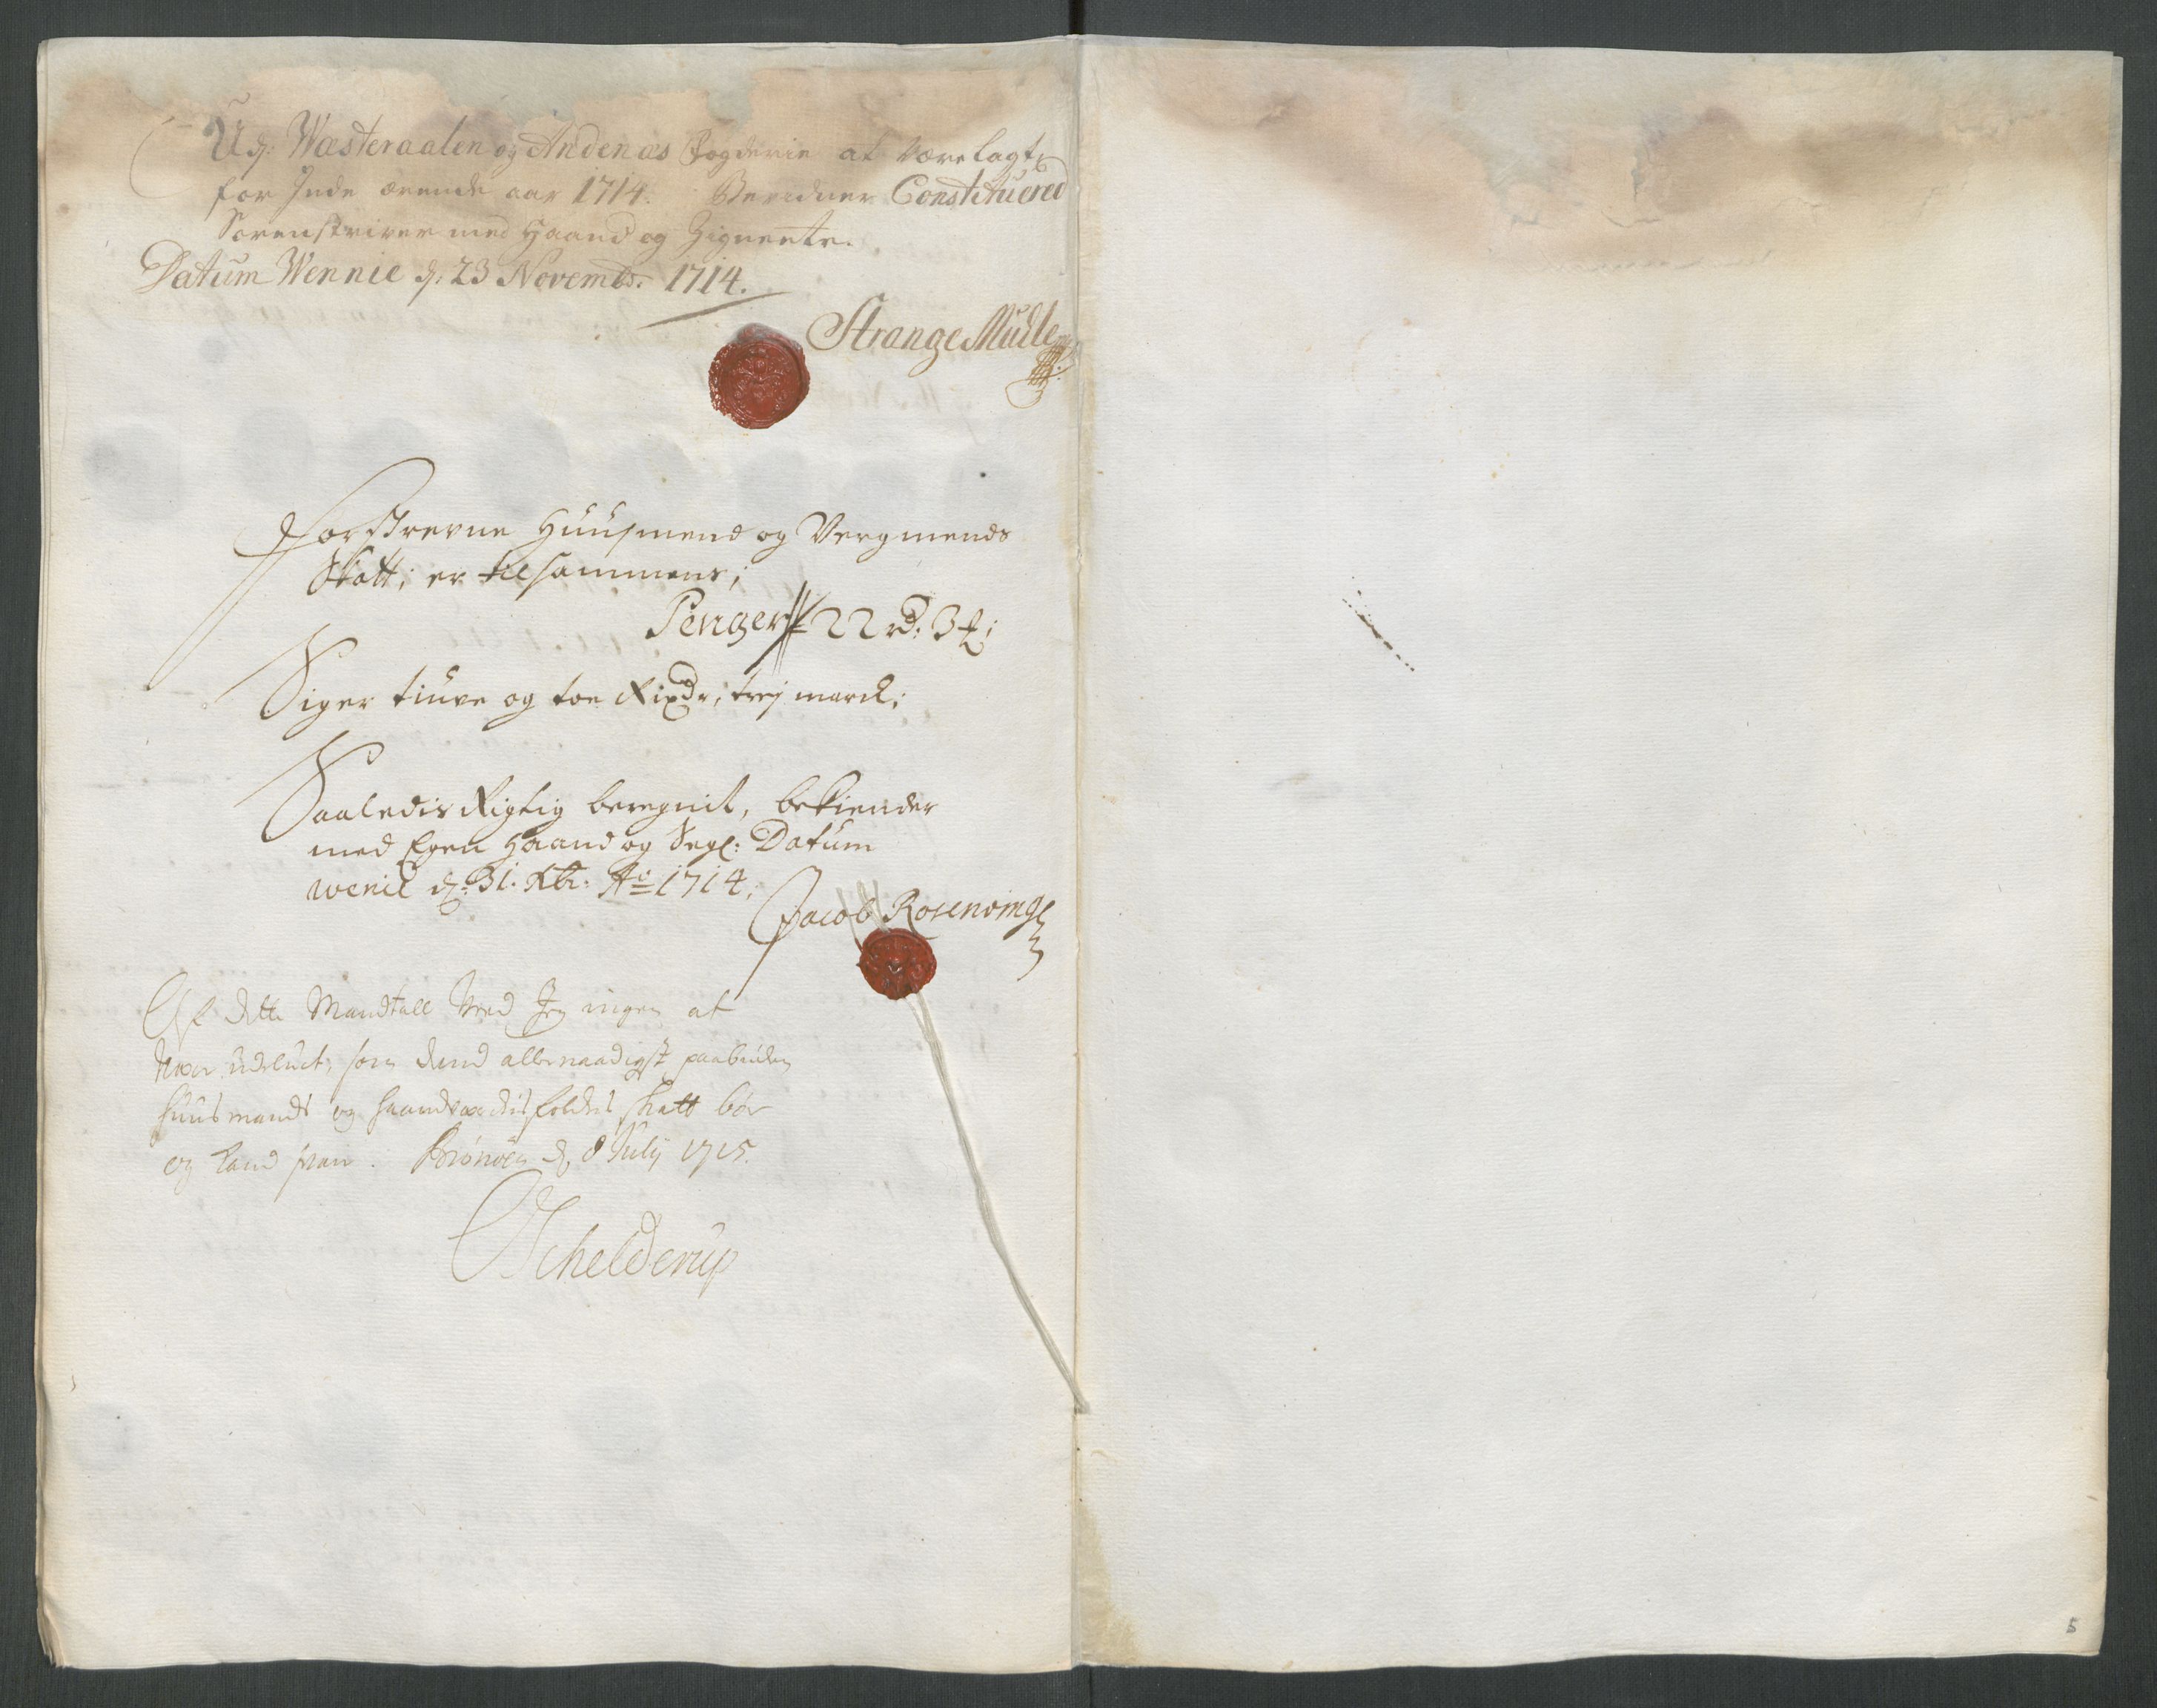 Udj: Wæsteraalen og Andenæs Fogderie at være lagt
for Inde ærende aar 1714. Constituered
Sorenskriver med Haand og Zignette.
Datum Wennie dj: 23 Novembr. 1714.
Strange Muller
Forskrevne Huusmend og Vergmends
Skatt; er tilsammens;
Penger 22 rd: 3 ℔;
Siger tiuve og toe Rixdr; trej marck;
Saaledis Rigtig beregnit, bekiender
med Egen Haand og Segl: Datum
wenie dj: 31. Xbr: Ao 1714;
Jacob Rosenvinge
Af dette Mandtall Veed Jeg ingen at
være udeluct, som dend allernaadigst paabudne
huusmands og haandværchsfolches skatt bør
og kand svare. Brønøen d, 8 July 1715.
Schelderup
5